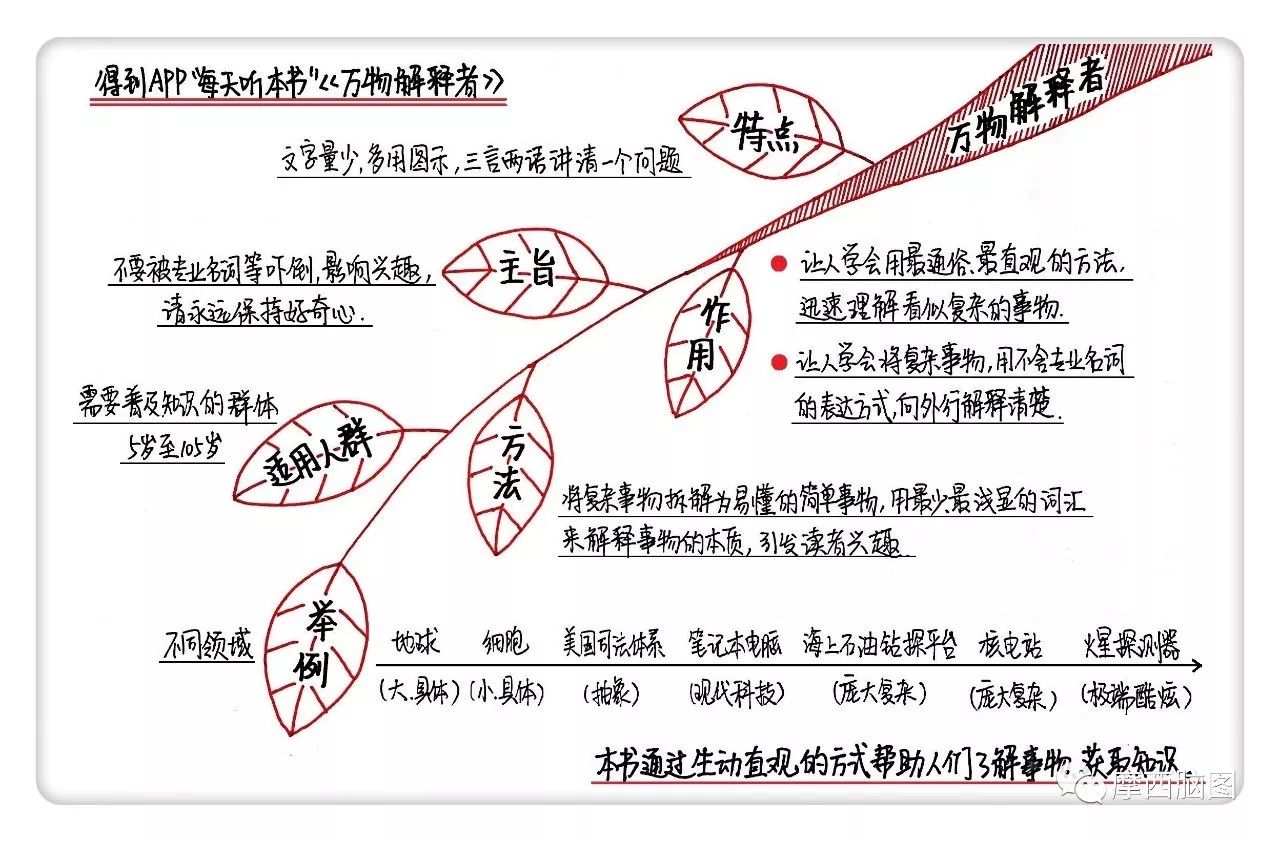 得到APP“每天听本书”《万物解释者》
万物解释者
特点
文字量少,多用图示,三言两语讲清一个问题
主旨
不要被专业名词等吓倒,影响兴趣,
请永远保持好奇心.
作用
让人学会用最通俗、最直观的方法,
迅速理解看似复杂的事物.
让人学会将复杂事物,用不含专业名词
的表达方式,向外行解释清楚.
适用人群
需要普及知识的群体
5岁至105岁
方法
将复杂事物拆解为易懂的简单事物,用最少最浅显的词汇
来解释事物的本质,引发读者兴趣.
举例
不同领域
地球 细胞 美国司法体系 笔记本电脑 海上石油钻探平台 核电站 火星探测器
(大.具体) (小.具体) (抽象) (现代科技) (庞大复杂) (庞大复杂) (极端酷炫)
本书通过生动直观的方式帮助人们了解事物、获取知识.
摩西脑图